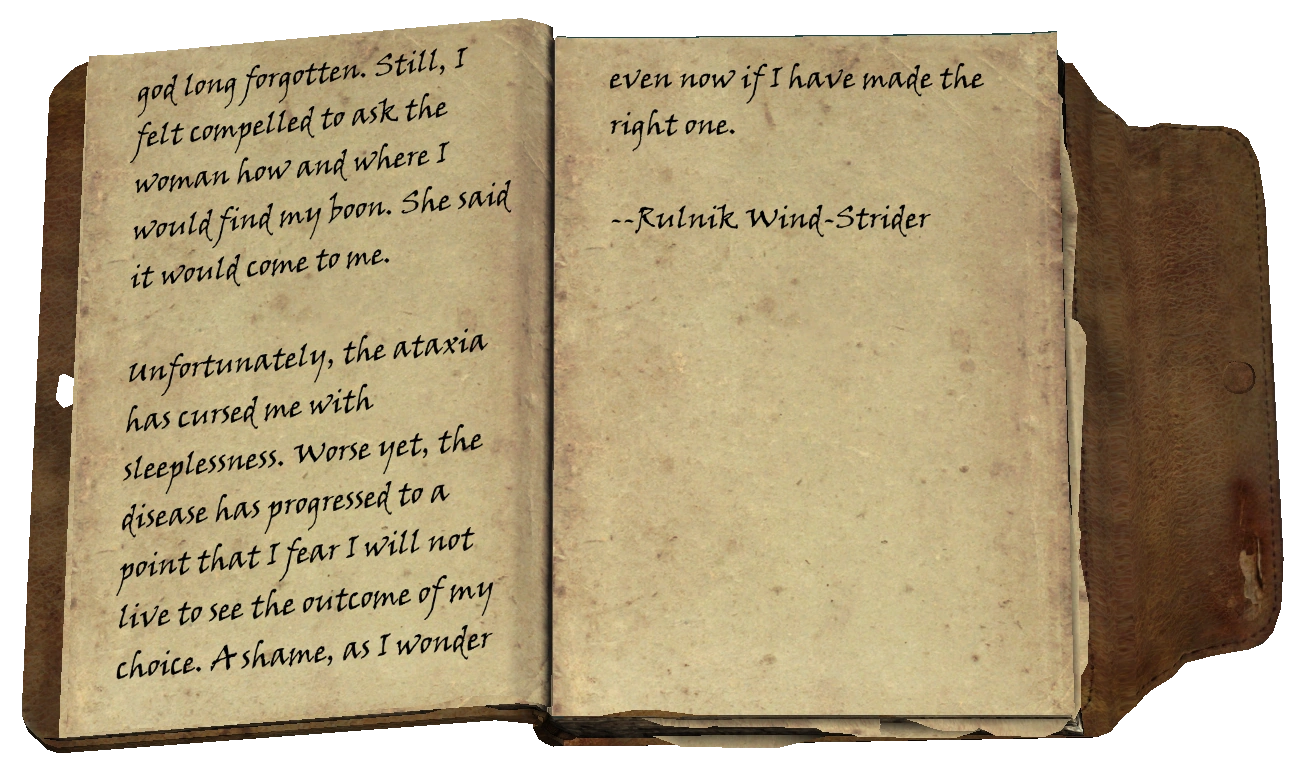 god long forgotten. Still, I
felt compelled to ask the
woman how and where I
would find my boon. She said
it would come to me.
Unfortunately, the ataxia
has cursed me with
sleeplessness. Worse yet, the
disease has progressed to a
point that I fear I will not
live to see the outcome of my
choice. A shame, as I wonder
even now if I have made the
right one.
--Rulnik Wind-Strider